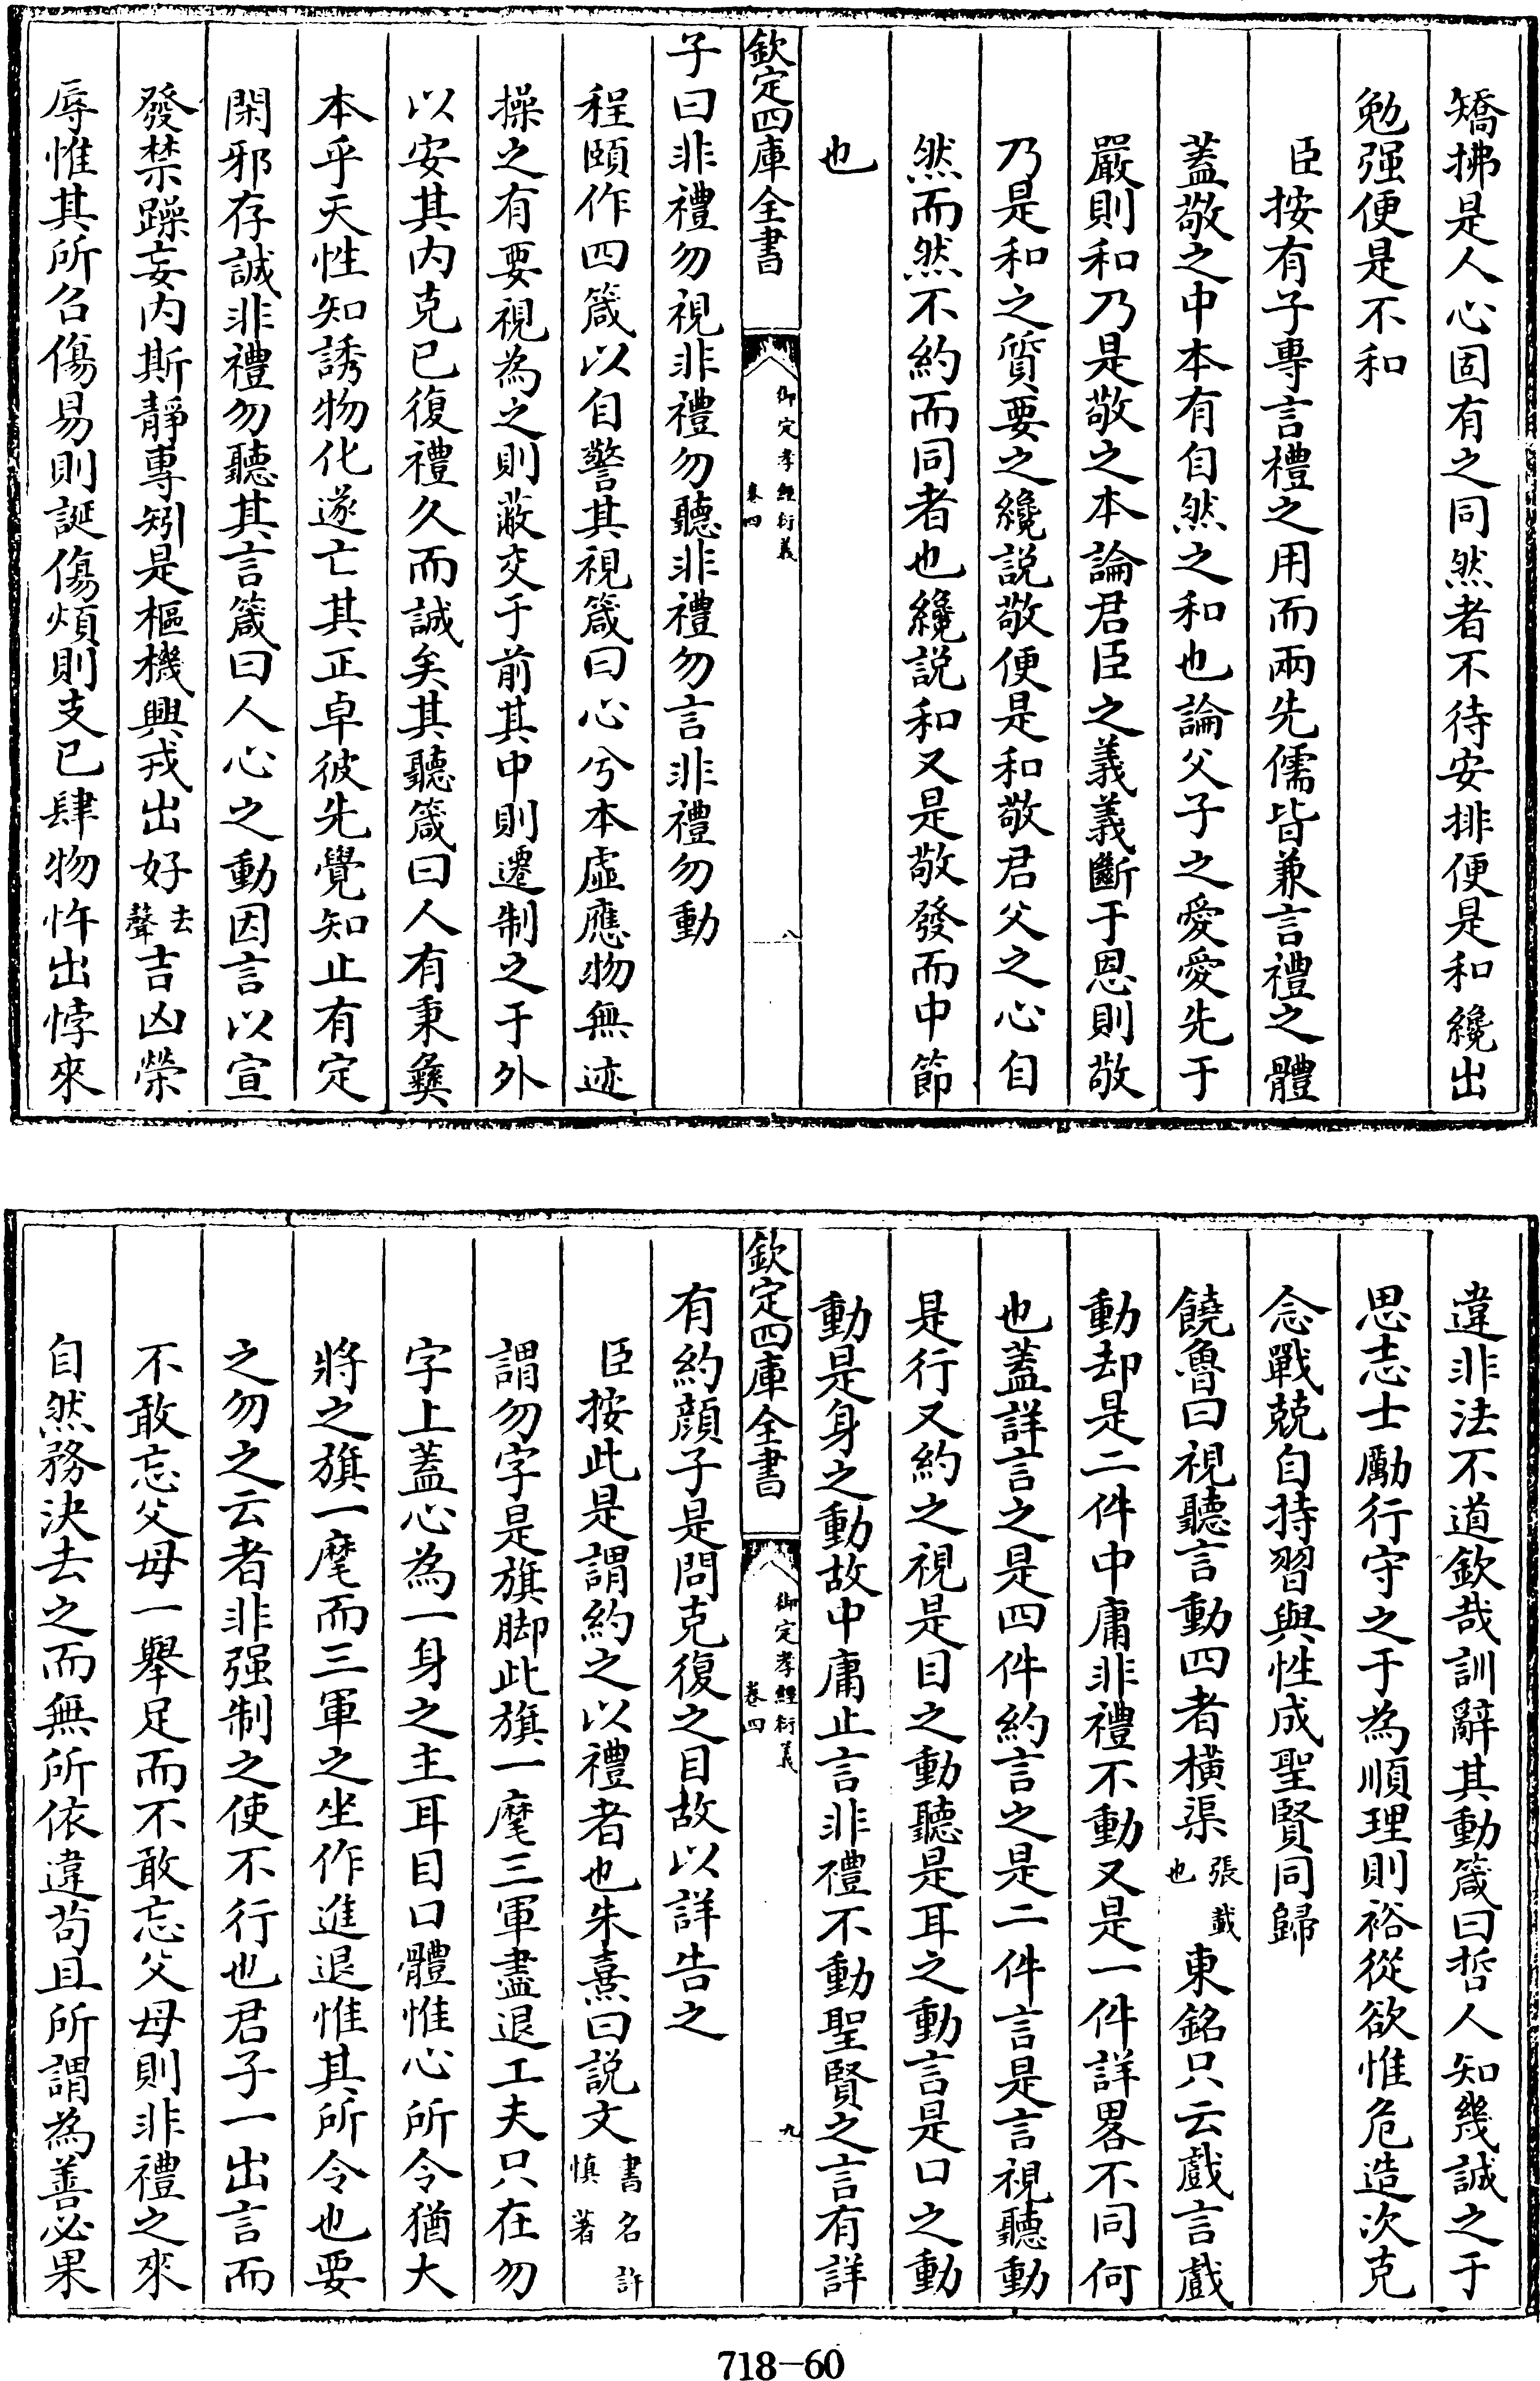 矯拂是人心固有之同然者不待安排便是和纔出
勉强便是不和
臣按有子專言禮之用而兩先儒皆兼言禮之體
蓋敬之中本有自然之和也論父子之愛愛先于
嚴則和乃是敬之本論君臣之義義斷于恩則敬
乃是和之質要之纔説敬便是和敬君父之心自
然而然不約而同者也纔説和又是敬發而中節
也
欽定四庫全書
御定孝經衍義
卷四
八
子曰非禮勿視非禮勿聽非禮勿言非禮勿動
程頤作四箴以自警其視箴曰心兮本虛應物無迹
操之有要視為之則蔽交于前其中則遷制之于外
以安其内克已復禮久而誠矣其聽箴曰人有秉彝
本乎天性知誘物化遂亡其正卓彼先覺知止有定
閑邪存誠非禮勿聽其言箴曰人心之動因言以宣
發禁躁妄内斯靜專矧是樞機興戎出好去聲吉凶榮
辱惟其所召傷易則誕傷煩則支已肆物忤出悖來
違非法不道欽哉訓辭其動箴曰哲人知幾誠之于
思志士勵行守之于為順理則裕從欲惟危造次克
念戰兢自持習與性成聖賢同歸
饒魯曰視聽言動四者橫渠張載也東銘只云戲言戲
動却是二件中庸非禮不動又是一件詳畧不同何
也蓋詳言之是四件約言之是二件言是言視聽動
是行又約之視是目之動聽是耳之動言是口之動
動是身之動故中庸止言非禮不動聖賢之言有詳
欽定四庫全書
御定孝經衍義
卷四
九
有約顔子是問克復之目故以詳告之
臣按此是謂約之以禮者也朱熹曰説文書名許慎著
謂勿字是旗脚此旗一麾三軍盡退工夫只在勿
字上蓋心為一身之主耳目口體惟心所令猶大
將之旗一麾而三軍之坐作進退惟其所令也要
之勿之云者非强制之使不行也君子一出言而
不敢忘父母一舉足而不敢忘父母則非禮之來
自然務決去之而無所依違苟且所謂為善必果
718-60